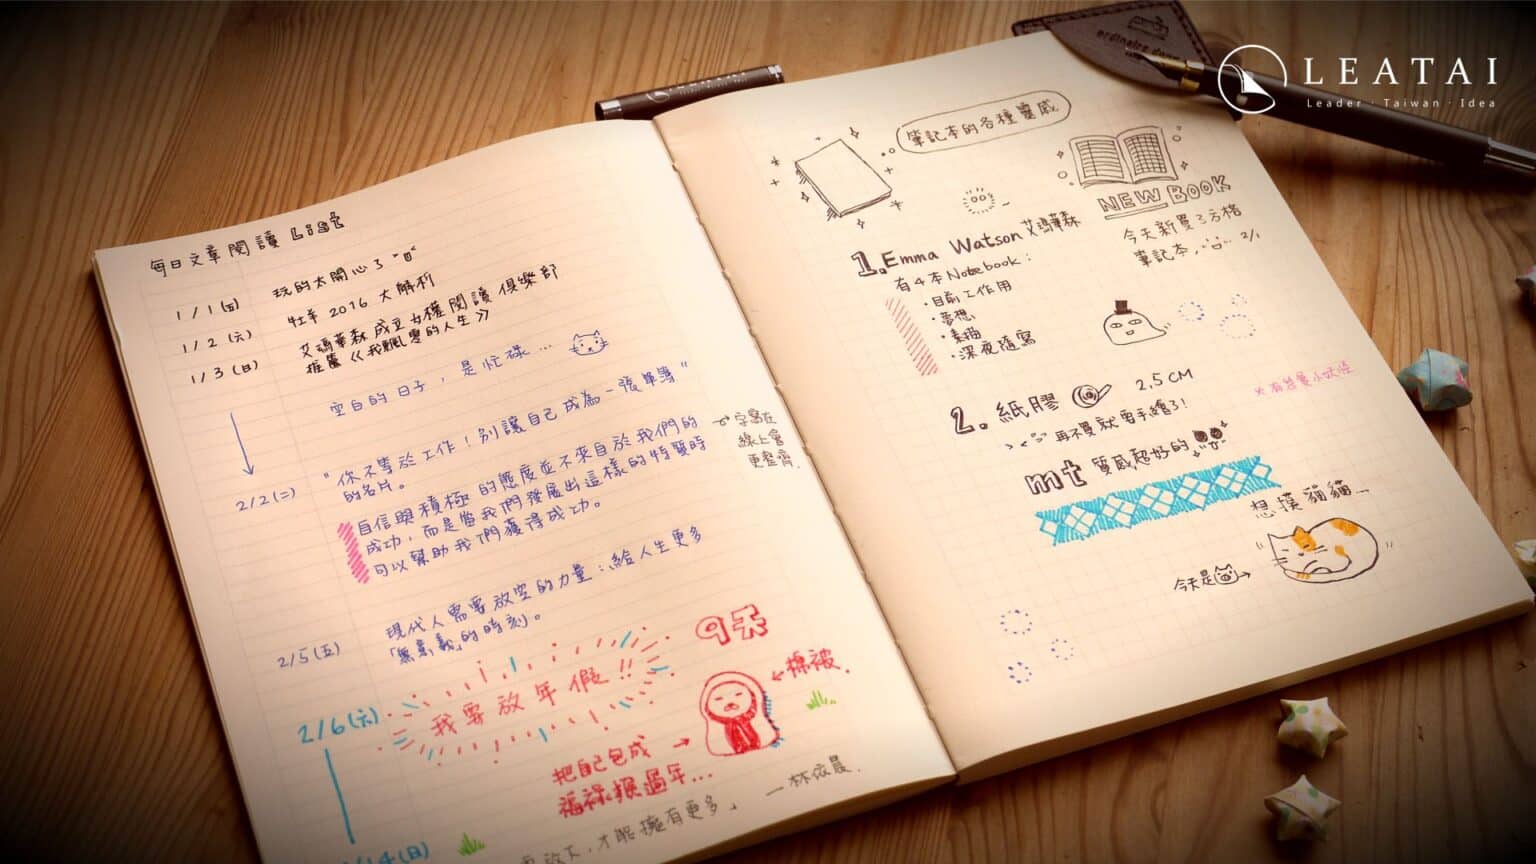 LEATAI
Leader · Taiwan · Idea
每日文章閱讀 List
1/1(五) 玩的太開心了
1/2(六) 牡羊2016大解析
1/3(日) 艾瑪華森成立女權閱讀俱樂部
推薦《我飄零的人生》
空白的日子，是忙碌...
2/2(二) "你不等於工作！別讓自己成為一張單薄"
的名片。
自信與積極的態度並不來自於我們的
成功，而是當我們發展出這樣的特質時
可以幫助我們獲得成功。
字寫在
線上會
更整齊.
2/5(五) 現代人需要放空的力量：給人生更多
「無意義」的時刻。
2/6(六) 我要放年假!!
9天
棉被.
把自己包成
福祿猴過年...
放下，才能擁有更多」
14(日)
筆記本的各種靈感
NEW BOOK
今天新買了方格
筆記本, 2/1
1. Emma Watson 艾瑪華森
有4本Notebook：
·目前工作用
·夢想
·素描
·深夜隨寫
2. 紙膠 2.5CM
再不買就要手繪了!
mt 質感超好的
想摸貓貓...
今天是